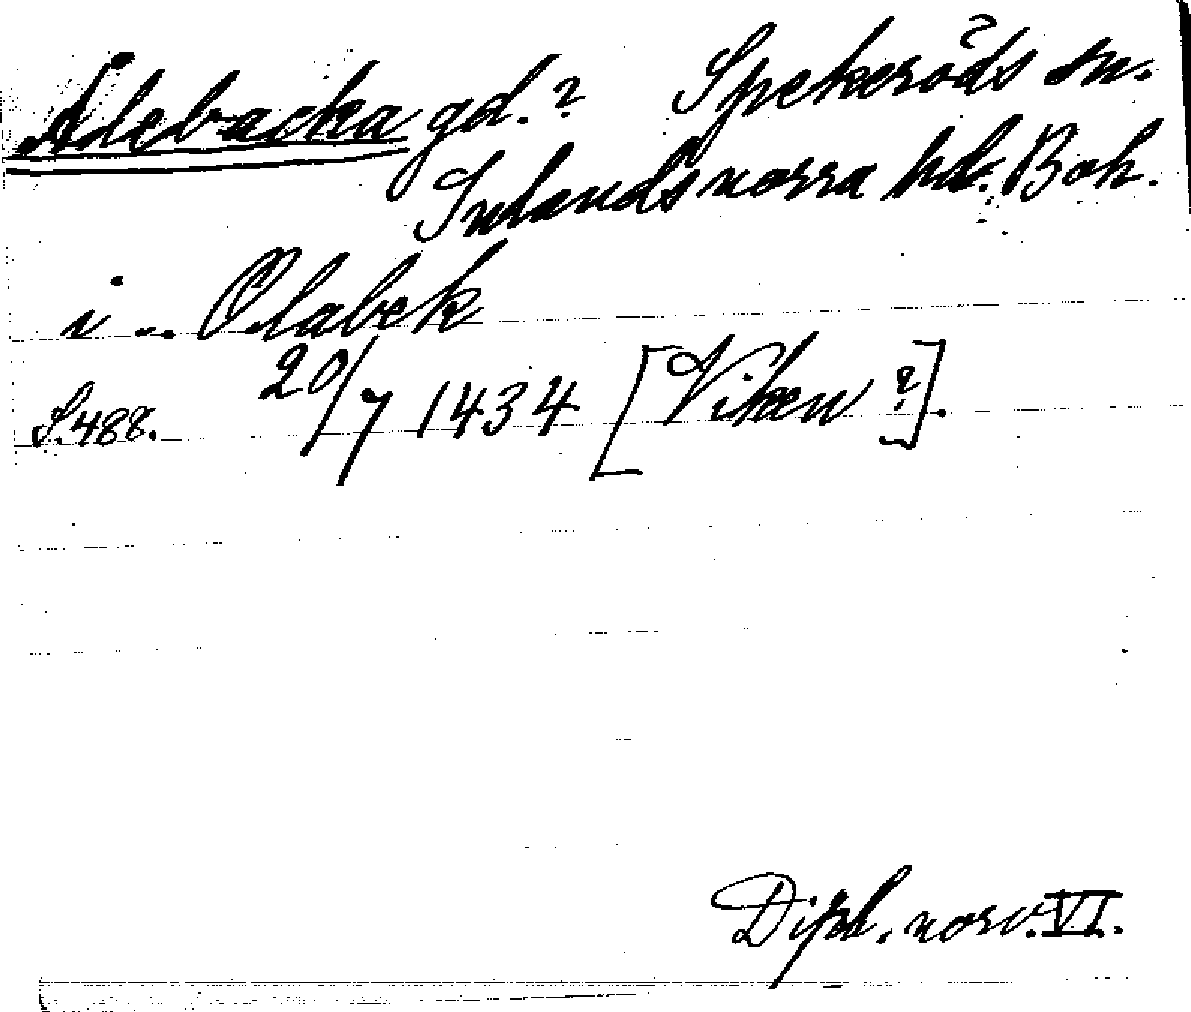 Ålebacka gd.? Spekeröds sn.
Inlands norra hd. Boh.
i .. Olabek
S. 488. 20/7 1434 [Viken ?].
Dipl. norv. VI.